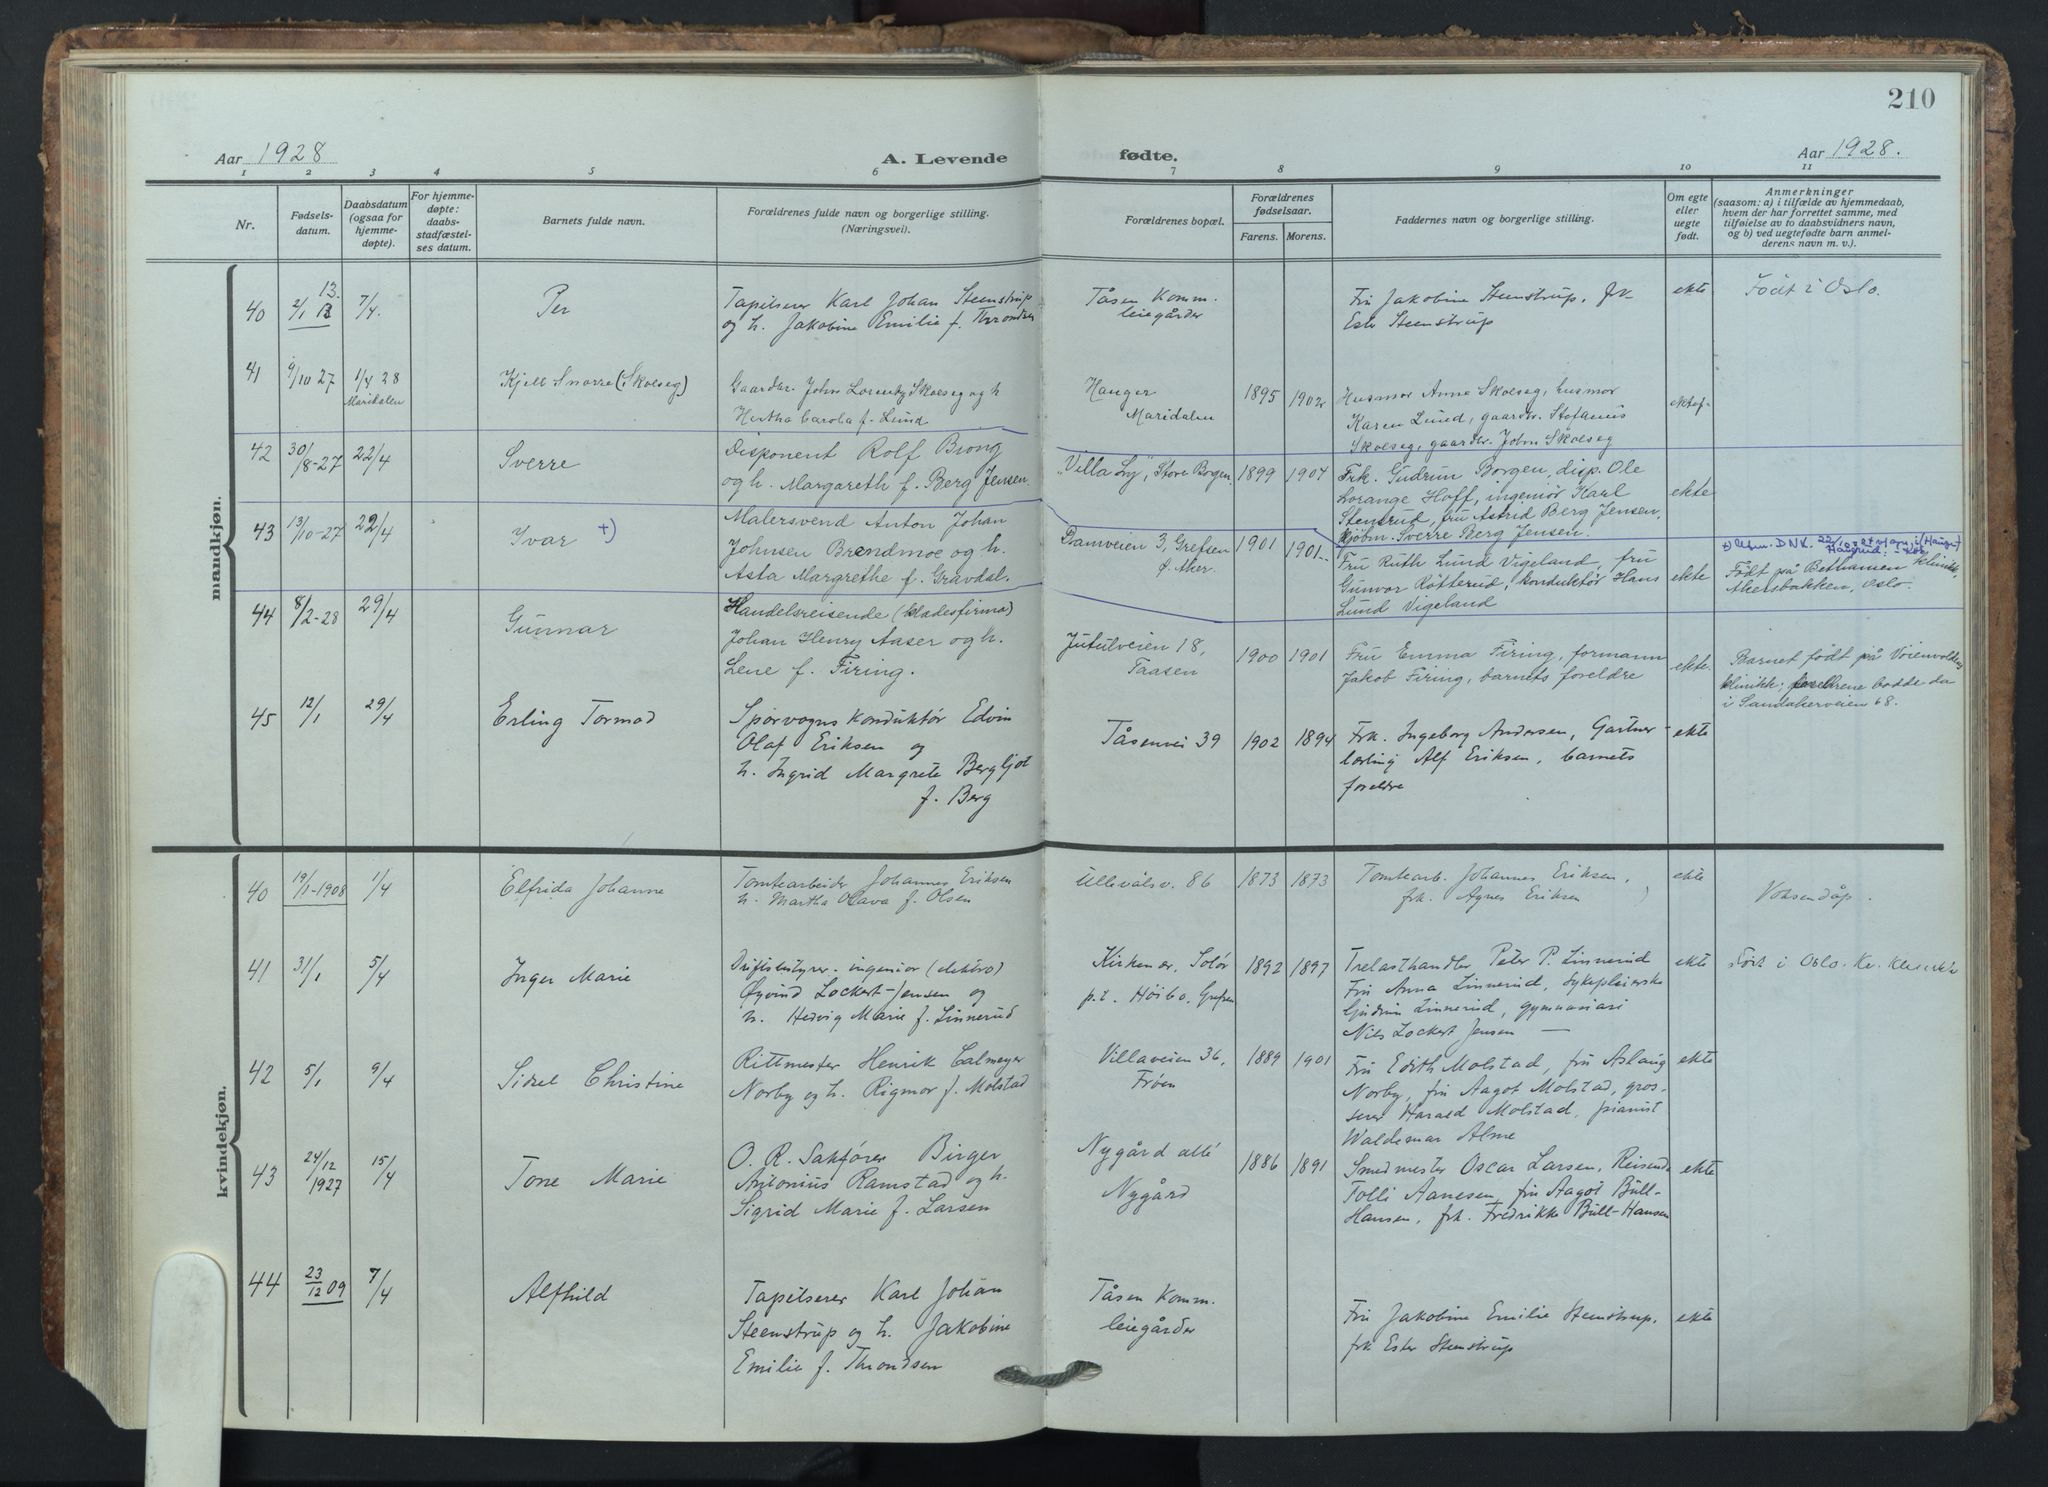 210
Aar 1928
A. Levende
fødte.
Aar 1928.
1 2 3 4 5 6 7 8 9 10 11
Nr.
Fødsels-
datum.
Daabsdatum
(ogsaa for
hjemme-
døpte).
For hjemme-
døpte:
daabs-
stadfæstel-
ses datum.
Barnets fulde navn.
Forældrenes fulde navn og borgerlige stilling.
(Næringsvei).
Forældrenes bopæl.
Forældrenes
fødselsaar.
Farens. Morens.
Faddernes navn og borgerlige stilling.
Om egte
eller
uegte
født.
Anmerkninger
(saasom: a) i tilfælde av hjemmedaab,
hvem der har forrettet samme, med
tilføielse av to daabsvidners navn,
og b) ved uegtefødte barn anmel-
derens navn m. v.).
mandkjøn.
40 2/1 13 7/4.
Per
Tapetserer Karl Johan Steenstrup
og h. Jakobine Emilie f. Throndsen
Tåsen Komm.
leiegårder
Fru Jakobine Steenstrup, frk
Ester Steenstrup
ekte
Født i Oslo.
41 9/10 27 1/4 28
Maridalen
Kjell Snorre (Skolseg)
Gaardbr. John Lorentz Skolseg og h
Hertha Carola f. Lund
Hauger
Maridalen
1895 1902
Husmor Anna Skolseg, husmor
Karen Lund, gaardbr. Stefanus
Skolseg, gaardbr. John Skolseg
ektef-
42 30/8-27 22/4
Sverre
Disponent Rolf Brong
og h. Margareth f. Berg Jensen
"Villa Ly", Store Borgen
1899 1904
Frk. Gudrun Borgen, disp. Ole
Lorange Hoff, ingeniør Karl
Stensrud, fru Astrid Berg Jensen,
kjøbm. Sverre Berg Jensen.
ekte
43 13/10-27 22/4
Ivar +)
Malersvend Anton Johan
Johnsen Brendmoe og h.
Asta Margrethe f. Gravdal.
Damveien 3, Grefsen
Ø. Aker.
1901 1901
Fru Ruth Lund Vigeland, fru
Gunvor Røtterud, konduktør Hans
Lund Vigeland
ekte
+) Utm. D N K.
Født på Bethanien klinikk,
Akersbakken, Oslo.
44 8/2-28 29/4
Gunnar
Handelsreisende (klædesfirma)
Johan Henry Aaser og h.
Lene f. Firing.
Jutulveien 18,
Taasen
1900 1901
Fru Emma Firing, formann
Jakob Firing, barnets foreldre
ekte.
Barnet født på Voienvolden
klinikk; foreldrene bodde da
i Sandakerveien 68.
45 12/1 29/4
Erling Tormod
Sporvogns konduktør Edvin
Olaf Eriksen og
h. Ingrid Margrete Bergljot
f. Berg
Tåsenvei 39
1902 1894
Frk. Ingeborg Andersen, Gartner-
lærling Alf Eriksen, barnets
foreldre
ekte
kvindekjøn.
40 19/1-1908 1/4
Elfrida Johanne
Tomtearbeider Johannes Eriksen
h. Martha Olava f. Olsen
Ullevålsv. 86
1873 1873
Tomtearb. Johannes Eriksen,
frk. Agnes Eriksen
ekte
Voksendåp.
41 31/1 5/4
Inger Marie
Driftsbestyrer-ingeniør (elektro)
Øyvind Lockert-Jensen og
h. Hedvig Marie f. Linnerud
Kirkenær, Solør
p.t. Høibo, Grefsen
1892 1897
Trelasthandler Peter P. Linnerud
Fru Anna Linnerud, Sykepleierske
Gudrun Linnerud, gymnasiast
Niels Lockert Jensen —
ekte
Født i Oslo. Kv. Klinikk
42 5/1 9/4
Sidsel Christine
Rittmester Henrik Calmeyer
Norby og h. Rigmor f. Molstad
Villaveien 36,
Frøen
1889 1901
Fru Edith Molstad, fru Aslaug
Norby, fru Aagot Molstad, gros-
serer Harald Molstad, pianist
Waldemar Alme
ekte
43 24/12 1927 15/4
Tone Marie
O. R. Sakfører Birger
Antonius Ramstad og h.
Sigrid Marie f. Larsen
Nygård allé
Nygård
1886 1891
Smedmester Oscar Larsen, Reisende
Tolli Aanesen, fru Aagot Bull-
Hansen, frk. Fredrikke Bull-Hansen
ekte
44 23/12 09 7/4
Alfhild
Tapetserer Karl Johan
Steenstrup og h. Jakobine
Emilie f. Throndsen
Tåsen Komm.
leiegårder
Fru Jakobine Emilie Steenstrup,
frk Ester Steenstrup
ekte